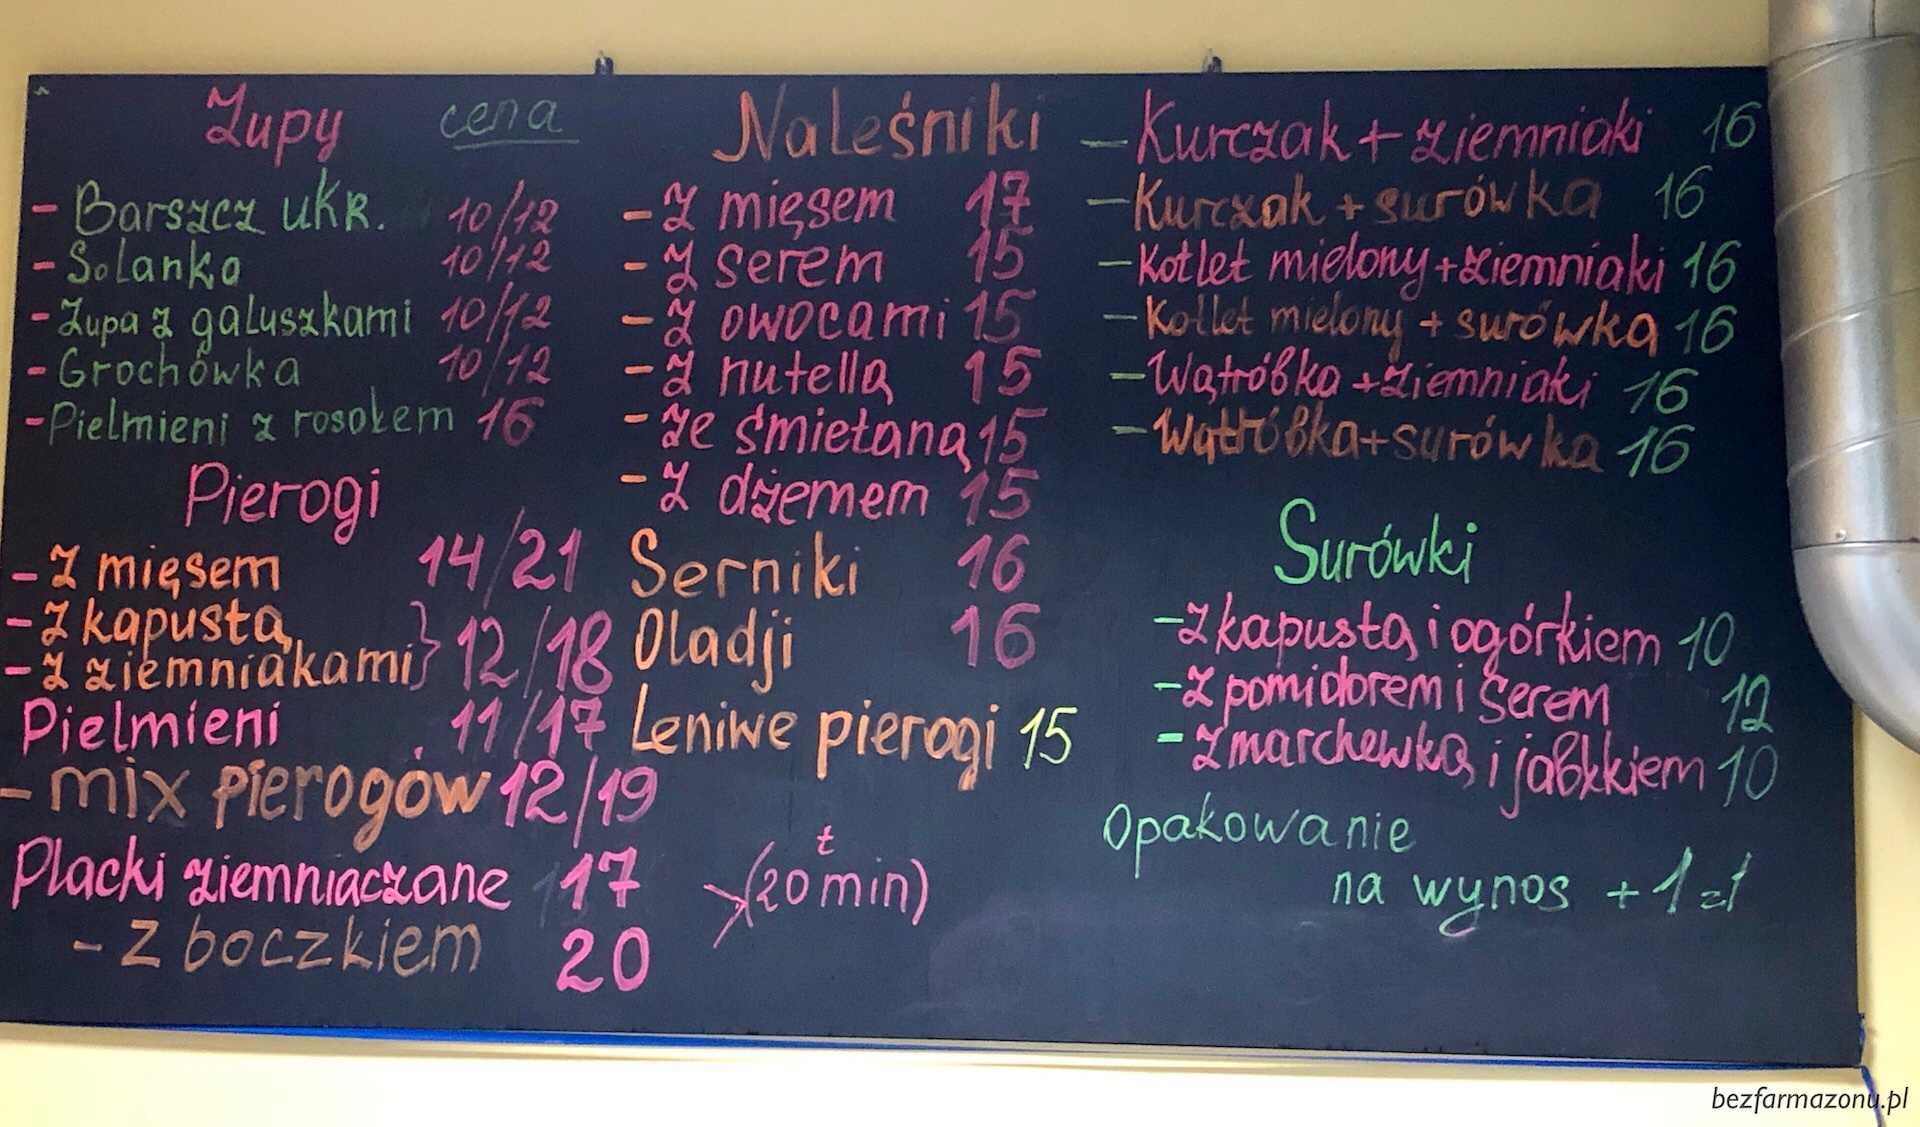 Zupy cena
- Barszcz ukr. 10/12
- Solanka 10/12
- Zupa z galuszkami 10/12
- Grochówka 10/12
- Pielmieni z rosołem 16
Pierogi
- Z mięsem 14/21
- Z kapustą
- Z ziemniakami } 12/18
Pielmieni 11/17
- mix pierogów 12/19
Placki ziemniaczane 17
- Z boczkiem 20
t
(20 min)
Naleśniki
- Z mięsem 17
- Z serem 15
- Z owocami 15
- Z nutellą 15
- Ze śmietaną 15
- Z dżemem 15
Serniki 16
Oladji 16
Leniwe pierogi 15
- Kurczak + ziemniaki 16
- Kurczak + surówka 16
- Kotlet mielony + ziemniaki 16
- Kotlet mielony + surówka 16
- Wątróbka + ziemniaki 16
- Wątróbka + surówka 16
Surówki
- Z kapustą i ogórkiem 10
- Z pomidorem i serem 12
- Z marchewką i jabłkiem 10
Opakowanie
na wynos + 1 zł
bezfarmazonu.pl